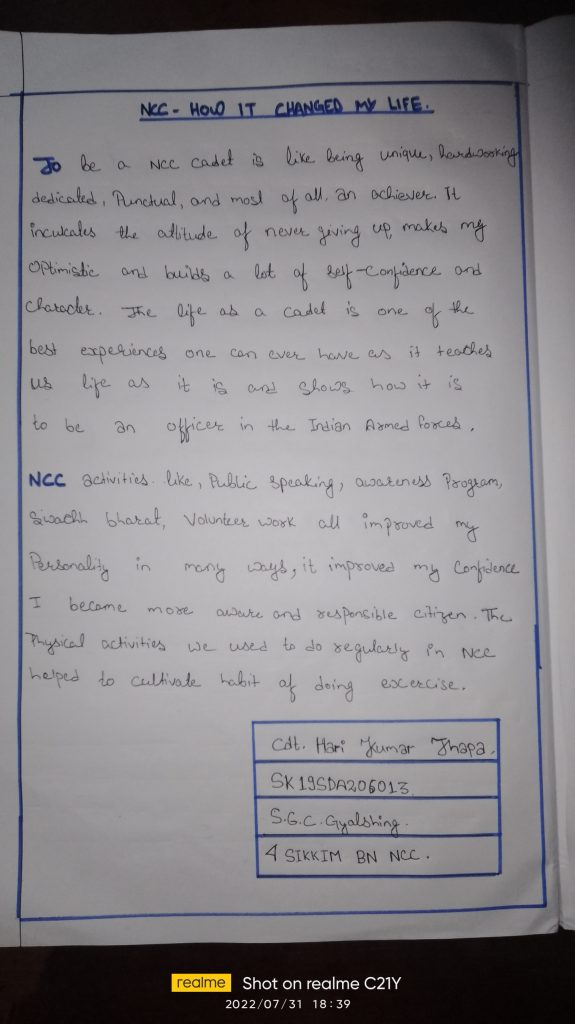 NCC - HOW IT CHANGED MY LIFE.
To be a NCC cadet is like being unique, hardworking
dedicated, Punctual, and most of all, an achiever. It
inculcates the attitude of never giving up, makes my
optimistic and builds a lot of self-confidence and
character. The life as a cadet is one of the
best experiences one can ever have as it teaches
us life as it is and shows how it is
to be an officer in the Indian Armed forces.
NCC activities like, Public speaking, awareness Program,
Swachh bharat, Volunteer work all improved my
Personality in many ways, it improved my confidence
I become more aware and responsible citizen. The
Physical activities we used to do regularly in NCC
helped to cultivate habit of doing excercise.
Cdt. Hari Kumar Thapa.
SK19SDA206013
S.G.C. Gyalshing.
4 SIKKIM BN NCC.
realme Shot on realme C21Y
2022/07/31 18:39